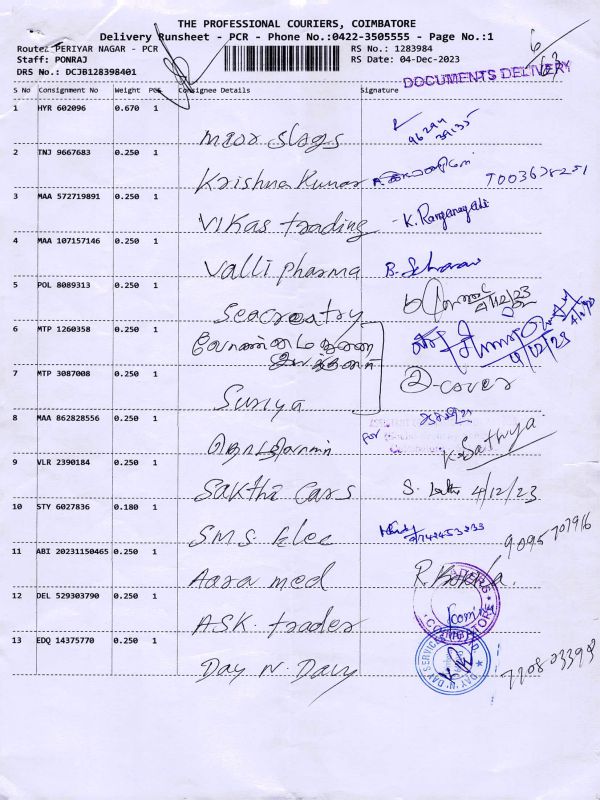 THE PROFESSIONAL COURIERS, COIMBATORE
Delivery Runsheet - PCR - Phone No.:0422-3505555 - Page No.:1
Route: PERIYAR NAGAR - PCR RS No.: 1283984
Staff: PONRAJ RS Date: 04-Dec-2023
DRS No.: DCJB128398401
DOCUMENTS DELIVERY
S No Consignment No Weight PCS Consignee Details Signature
1 HYR 602096 0.670 1
2 TNJ 9667683 0.250 1
Krishna Kumar
3 MAA 572719891 0.250 1
Vikas trading
4 MAA 107157146 0.250 1
Valli pharma
5 POL 8089313 0.250 1
4/12/23
6 MTP 1260358 0.250 1
4/12/23
7 MTP 3087008 0.250 1
2-cover
Suriya
8 MAA 862828556 0.250 1
For
K. Sathya
9 VLR 2390184 0.250 1
Sakthi Cars 4/12/23
10 STY 6027836 0.180 1
S.M.S. Elec
9095 707916
11 ABI 20231150465 0.250 1
Aara med
12 DEL 529303790 0.250 1
ASK. trader
13 EDQ 14375770 0.250 1
Day N. Davy